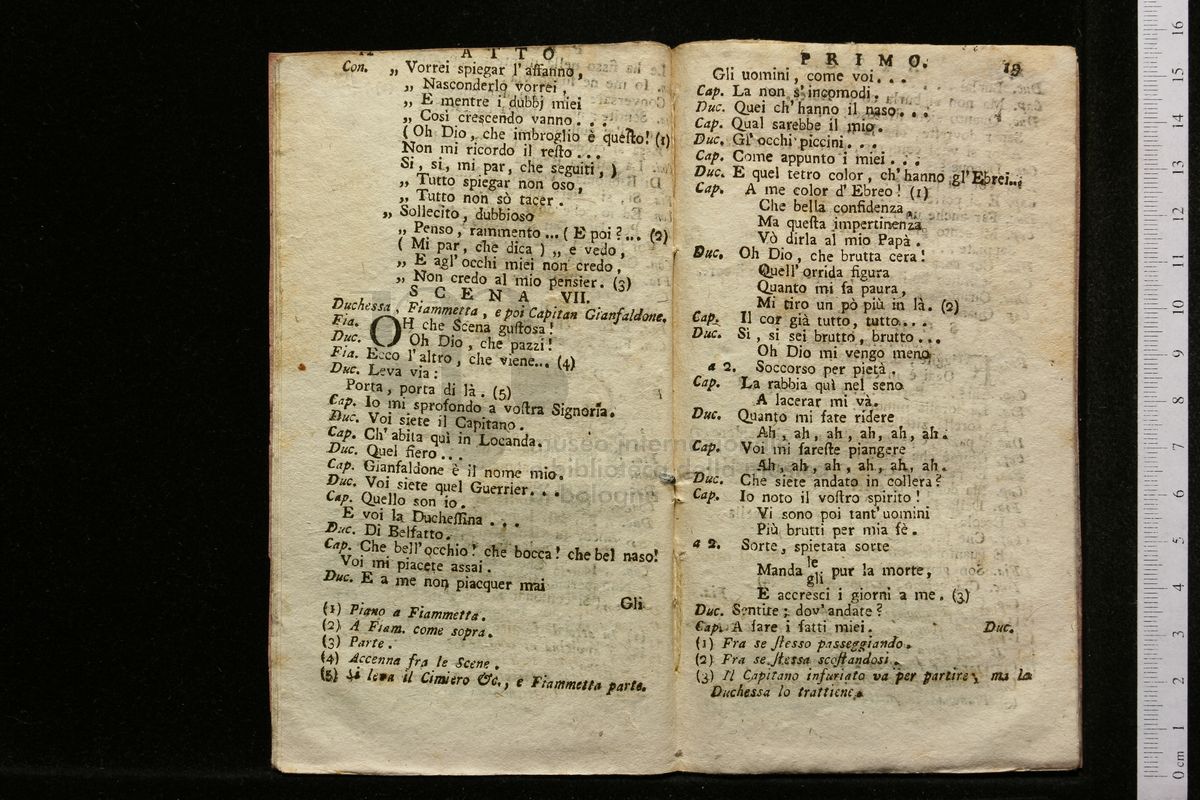 ATTO
Con. „ Vorrei spiegar l'affanno,
„ Nasconderlo vorrei,
„ E mentre i dubbj miei
„ Così crescendo vanno...
(Oh Dio, che imbroglio è questo! (1)
Non mi ricordo il resto...
Si, si, mi par, che seguiti,)
„ Tutto spiegar non oso,
„ Tutto non sò tacer.
„ Sollecito, dubbioso
„ Penso, rammento... (E poi?... (2)
(Mi par, che dica) „ e vedo,
„ E agl'occhi miei non credo,
„ Non credo al mio pensier. (3)
SCENA VII.
Duchessa, Fiammetta, e poi Capitan Gianfaldone.
Fia. OH che Scena gustosa!
Duc. Oh Dio, che pazzi!
Fia. Ecco l'altro, che viene... (4)
Duc. Leva via:
Porta, porta di là. (5)
Cap. Io mi sprofondo a vostra Signorìa.
Duc. Voi siete il Capitano.
Cap. Ch'abita quì in Locanda.
Duc. Quel fiero...
Cap. Gianfaldone è il nome mio.
Duc. Voi siete quel Guerrier...
Cap. Quello son io.
E voi la Duchessina...
Duc. Di Belfatto.
Cap. Che bell'occhio! che bocca! che bel naso!
Voi mi piacete assai.
Duc. E a me non piacquer mai
Gli
(1) Piano a Fiammetta.
(2) A Fiam. come sopra.
(3) Parte.
(4) Accenna fra le Scene.
(5) Si leva il Cimiero &c., e Fiammetta parte.
PRIMO. 19
Gli uomini, come voi...
Cap. La non s'incomodi.
Duc. Quei ch'hanno il naso...
Cap. Qual sarebbe il mio.
Duc. Gl'occhi piccini...
Cap. Come appunto i miei...
Duc. E quel tetro color, ch'hanno gl'Ebrei...
Cap. A me color d'Ebreo! (1)
Che bella confidenza,
Ma questa impertinenza
Vò dirla al mio Papà.
Duc. Oh Dio, che brutta cera!
Quell'orrida figura
Quanto mi fa paura,
Mi tiro un pò più in là. (2)
Cap. Il cor già tutto, tutto...
Duc. Si, si sei brutto, brutto...
Oh Dio mi vengo meno
a 2. Soccorso per pietà.
Cap. La rabbia quì nel seno
A lacerar mi và.
Duc. Quanto mi fate ridere
Ah, ah, ah, ah, ah, ah.
Cap. Voi mi fareste piangere
Ah, ah, ah, ah, ah, ah.
Duc. Che siete andato in collera?
Cap. Io noto il vostro spirito!
Vi sono poi tant'uomini
Più brutti per mia fè.
a 2. Sorte, spietata sorte
Manda le gli pur la morte,
E accresci i giorni a me. (3)
Duc. Sentite; dov'andate?
Cap. A fare i fatti miei. Duc.
(1) Fra se stesso passeggiando.
(2) Fra se stessa scostandosi.
(3) Il Capitano infuriato va per partire, ma la
Duchessa lo trattiene.
museo internazionale
biblioteca della musica
bologna
0 cm 1 2 3 4 5 6 7 8 9 10 11 12 13 14 15 16